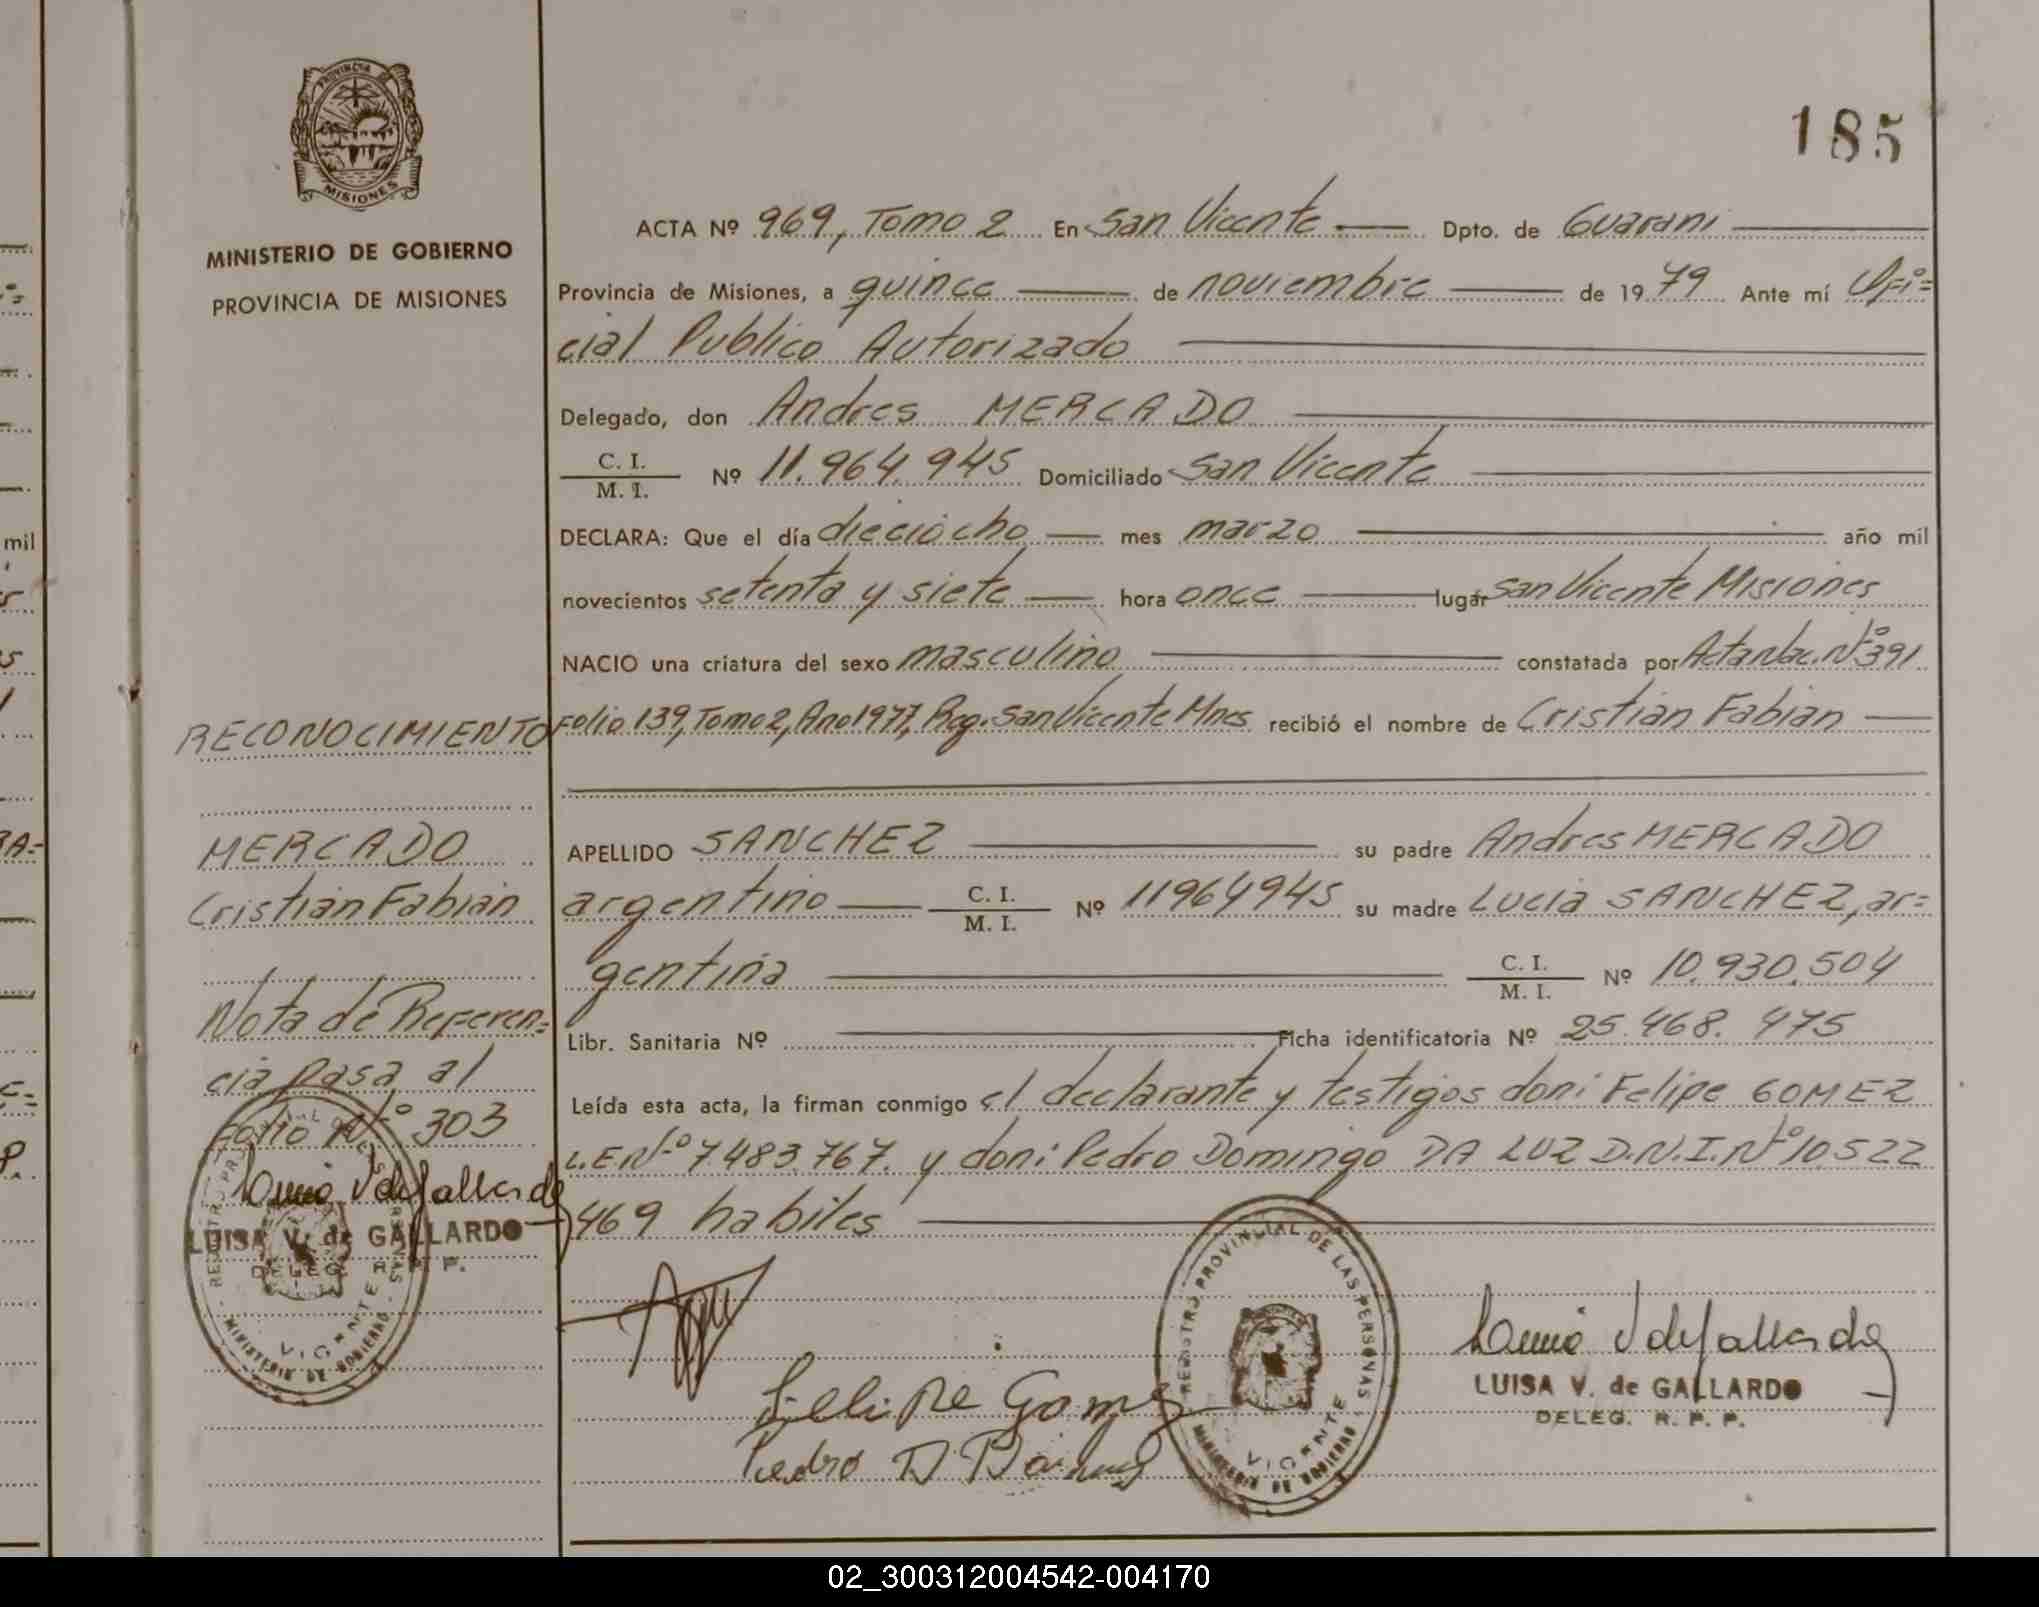 185
PROVINCIA DE MISIONES
MINISTERIO DE GOBIERNO
PROVINCIA DE MISIONES
ACTA Nº 969, Tomo 2 En San Vicente Dpto. de Guarani
Provincia de Misiones, a quince de noviembre de 19 79 Ante mí Ofi=
cial Publico Autorizado
Delegado, don Andres MERCADO
C. I. / M. I. Nº 11.964.945 Domiciliado San Vicente
DECLARA: Que el día dieciocho mes marzo año mil
novecientos setenta y siete hora once lugar San Vicente Misiones
NACIO una criatura del sexo masculino constatada por Acta Nac. Nº 391
Folio 139, Tomo 2, Año 1977, Reg. San Vicente Mnes recibió el nombre de Cristian Fabian
APELLIDO SANCHEZ su padre Andres MERCADO
argentino C. I. / M. I. Nº 11964945 su madre Lucia SANCHEZ, ar=
gentina C. I. / M. I. Nº 10.930.504
Libr. Sanitaria Nº Ficha identificatoria Nº 25.468.475
Leída esta acta, la firman conmigo el declarante y testigos don: Felipe GOMEZ
L.E Nº 7483.767. y don: Pedro Domingo DA LUZ D.N.I. Nº 10.522
469 habiles
RECONOCIMIENTO
MERCADO
Cristian Fabian
Nota de Referen=
cia pasa al
Folio Nº 303
LUISA V. de GALLARDO
DELEG. R. P. P.
REGISTRO PROVINCIAL DE LAS PERSONAS
VICENTE
MINISTERIO DE GOBIERNO
Felipe Gomez
Pedro D
REGISTRO PROVINCIAL DE LAS PERSONAS
VICENTE
MINISTERIO DE GOBIERNO
LUISA V. de GALLARDO
DELEG. R. P. P.
mil
02_300312004542-004170